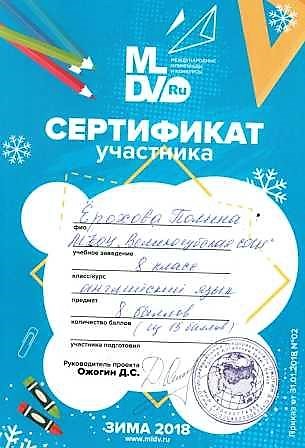 ML
DV
Ru
МЕЖДУНАРОДНЫЕ
ОЛИМПИАДЫ
И КОНКУРСЫ
СЕРТИФИКАТ
участника
Ёрохова Полина
фио
МБОУ "Великогубская СОШ"
учебное заведение
8 класс
класс/курс
английский язык
предмет
8 баллов
количество баллов (из 15 баллов)
участника подготовил
Руководитель проекта
Ожогин Д.С.
ЗИМА 2018
www.mldv.ru
Приказ от 31.01.2018 №02